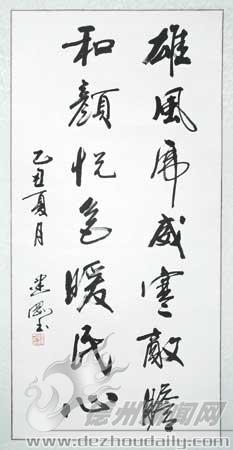 雄風虎威寒敵膽
和顏悦色暖民心
乙丑夏月
德州新闻网
www.dezhoudaily.com